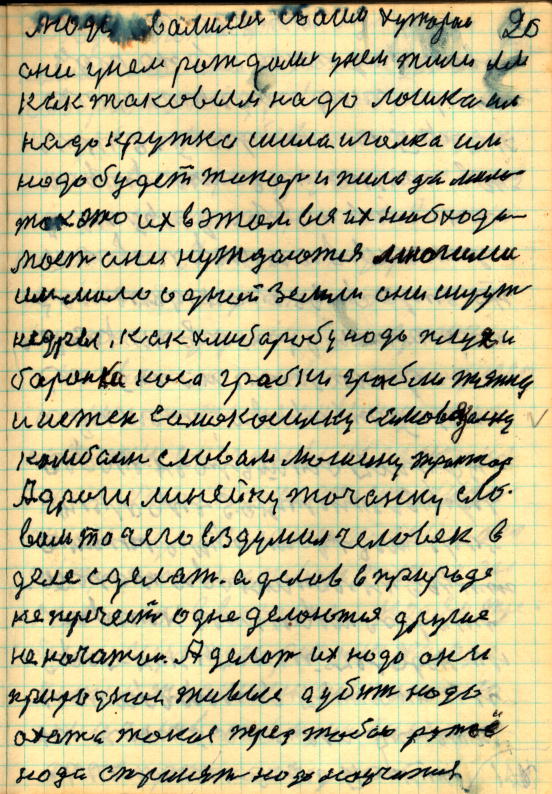 люди валили своим хутором 26
они унем рождали унем жили им
как таковым надо ложка им
надо кружка шила иголка им
надо будет топор и пила да мало
того это их в этом вся их необходи
мост они нуждаются многими
им мало одной земли они ищут
недры, как хлибаробу надо плуг и
баронка коса грабки грабли
и источник самокосилку самовязалку
комбаин словам машину трактор
А дроги линейку тачанку сло-
вам то чего вздумил человек в
деле сделат. а делов в природе
не перечест одне делоются другие
не початои. А делат их надо они
природнои живые а убит надо
охота такая перед тобою ружоё
нада стрелят надо научится